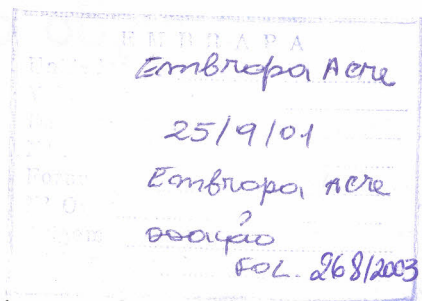 EMBRAPA
Embrapa Acre
25/9/01
Embrapa Acre
doação
FOL. 268/2003